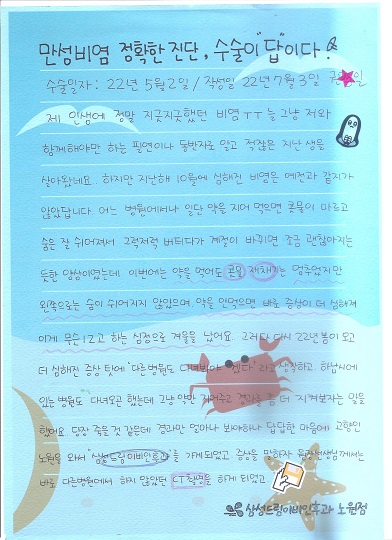 만성비염 정확한 진단, 수술이 "답"이다!
수술일자: 22년 5월 2일 / 작성일 22년 7월 3일
제 인생에 정말 지긋지긋했던 비염ㅜㅜ 늘 그냥 저와
함께해야만 하는 필연이나 동반자로 알고 적잖은 지난 생을
살아왔네요. 하지만 지난해 10월에 심해진 비염은 예전과 같지가
않았답니다. 어느 병원에서나 일단 약을 지어 먹으면 콧물이 마르고
숨은 잘 쉬어져서 그럭저럭 버티다가 계절이 바뀌면 조금 괜찮아지는
듯한 양상이였는데 이번에는 약을 먹어도 콧물 재채기는 멈추었지만
왼쪽으로는 숨이 쉬어지지 않았으며, 약을 안먹으면 바로 증상이 더 심해져
이게 무슨 12고 하는 심정으로 겨울을 났어요. 그러다 다시 22년 봄이 오고
더 심해진 증상 탓에 "다른병원도 다녀봐야 겠다" 라고 하남시에
있는 병원도 다녀오곤 했는데 그냥 약만 지어주고 경과를 좀 더 지켜보자는 말을
했어요. 당장 죽을 것 같은데 경과만 얼마나 보아야하나 답답한 마음에 고향인
노원을 와서 "삼성드림이비인후과"를 가게되었고 증상을 말하자 원장선생님께서는
바로 다른병원에서 하지 않았던 CT촬영을 하게 되었고
삼성드림이비인후과 노원점